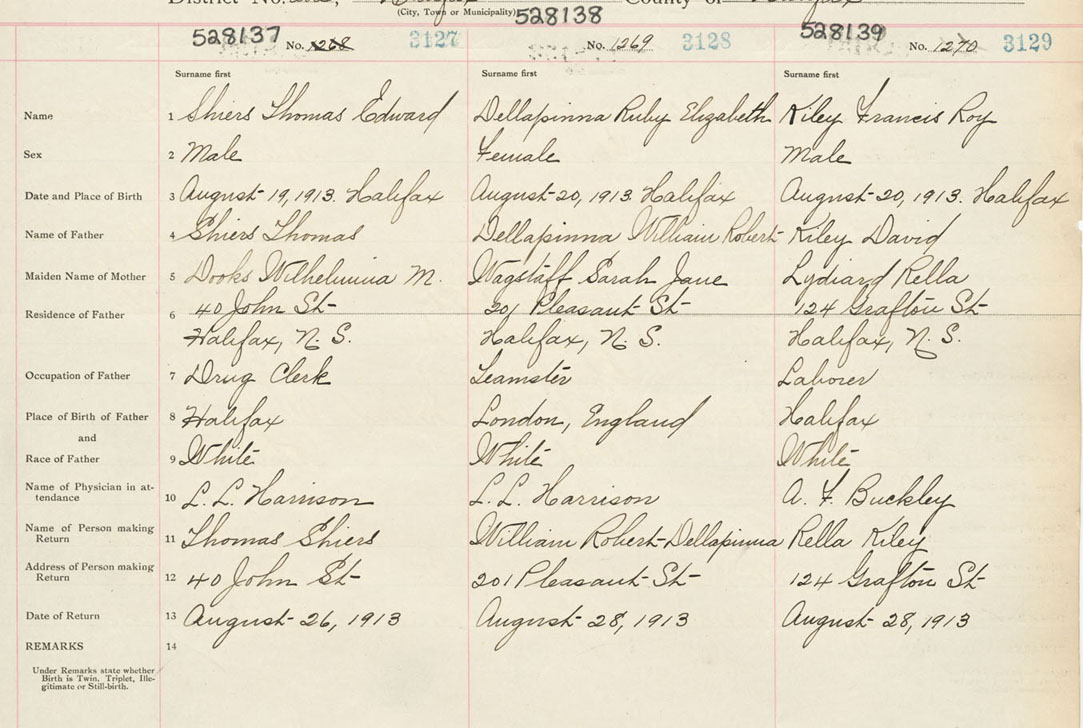 District No. County of Halifax
(City, Town or Municipality) 528138
528137 No. 1268 3127 No. 1269 3128 528139 No. 1270 3129
Surname first Surname first Surname first
Name 1 Shiers Thomas Edward Dellapinna Ruby Elizabeth Kiley Francis Roy
Sex 2 Male Female Male
Date and Place of Birth 3 August 19, 1913. Halifax August 20, 1913. Halifax August 20, 1913. Halifax
Name of Father 4 Shiers Thomas Dellapinna William Robert Kiley David
Maiden Name of Mother 5 Dooks Wilhelmina M. Wagstaff Sarah Jane Lydiard Rella
Residence of Father 6 40 John St 201 Pleasant St 124 Grafton St
Halifax, N. S. Halifax, N. S. Halifax, N. S.
Occupation of Father 7 Drug Clerk Teamster Laborer
Place of Birth of Father 8 Halifax London, England Halifax
and
Race of Father 9 White White White
Name of Physician in at-
tendance 10 L. L. Harrison L. L. Harrison A. F. Buckley
Name of Person making
Return 11 Thomas Shiers William Robert Dellapinna Rella Kiley
Address of Person making
Return 12 40 John St 201 Pleasant St 124 Grafton St
Date of Return 13 August 26, 1913 August 28, 1913 August 28, 1913
REMARKS 14
Under Remarks state whether
Birth is Twin. Triplet, Ille-
gitimate or Still-birth.